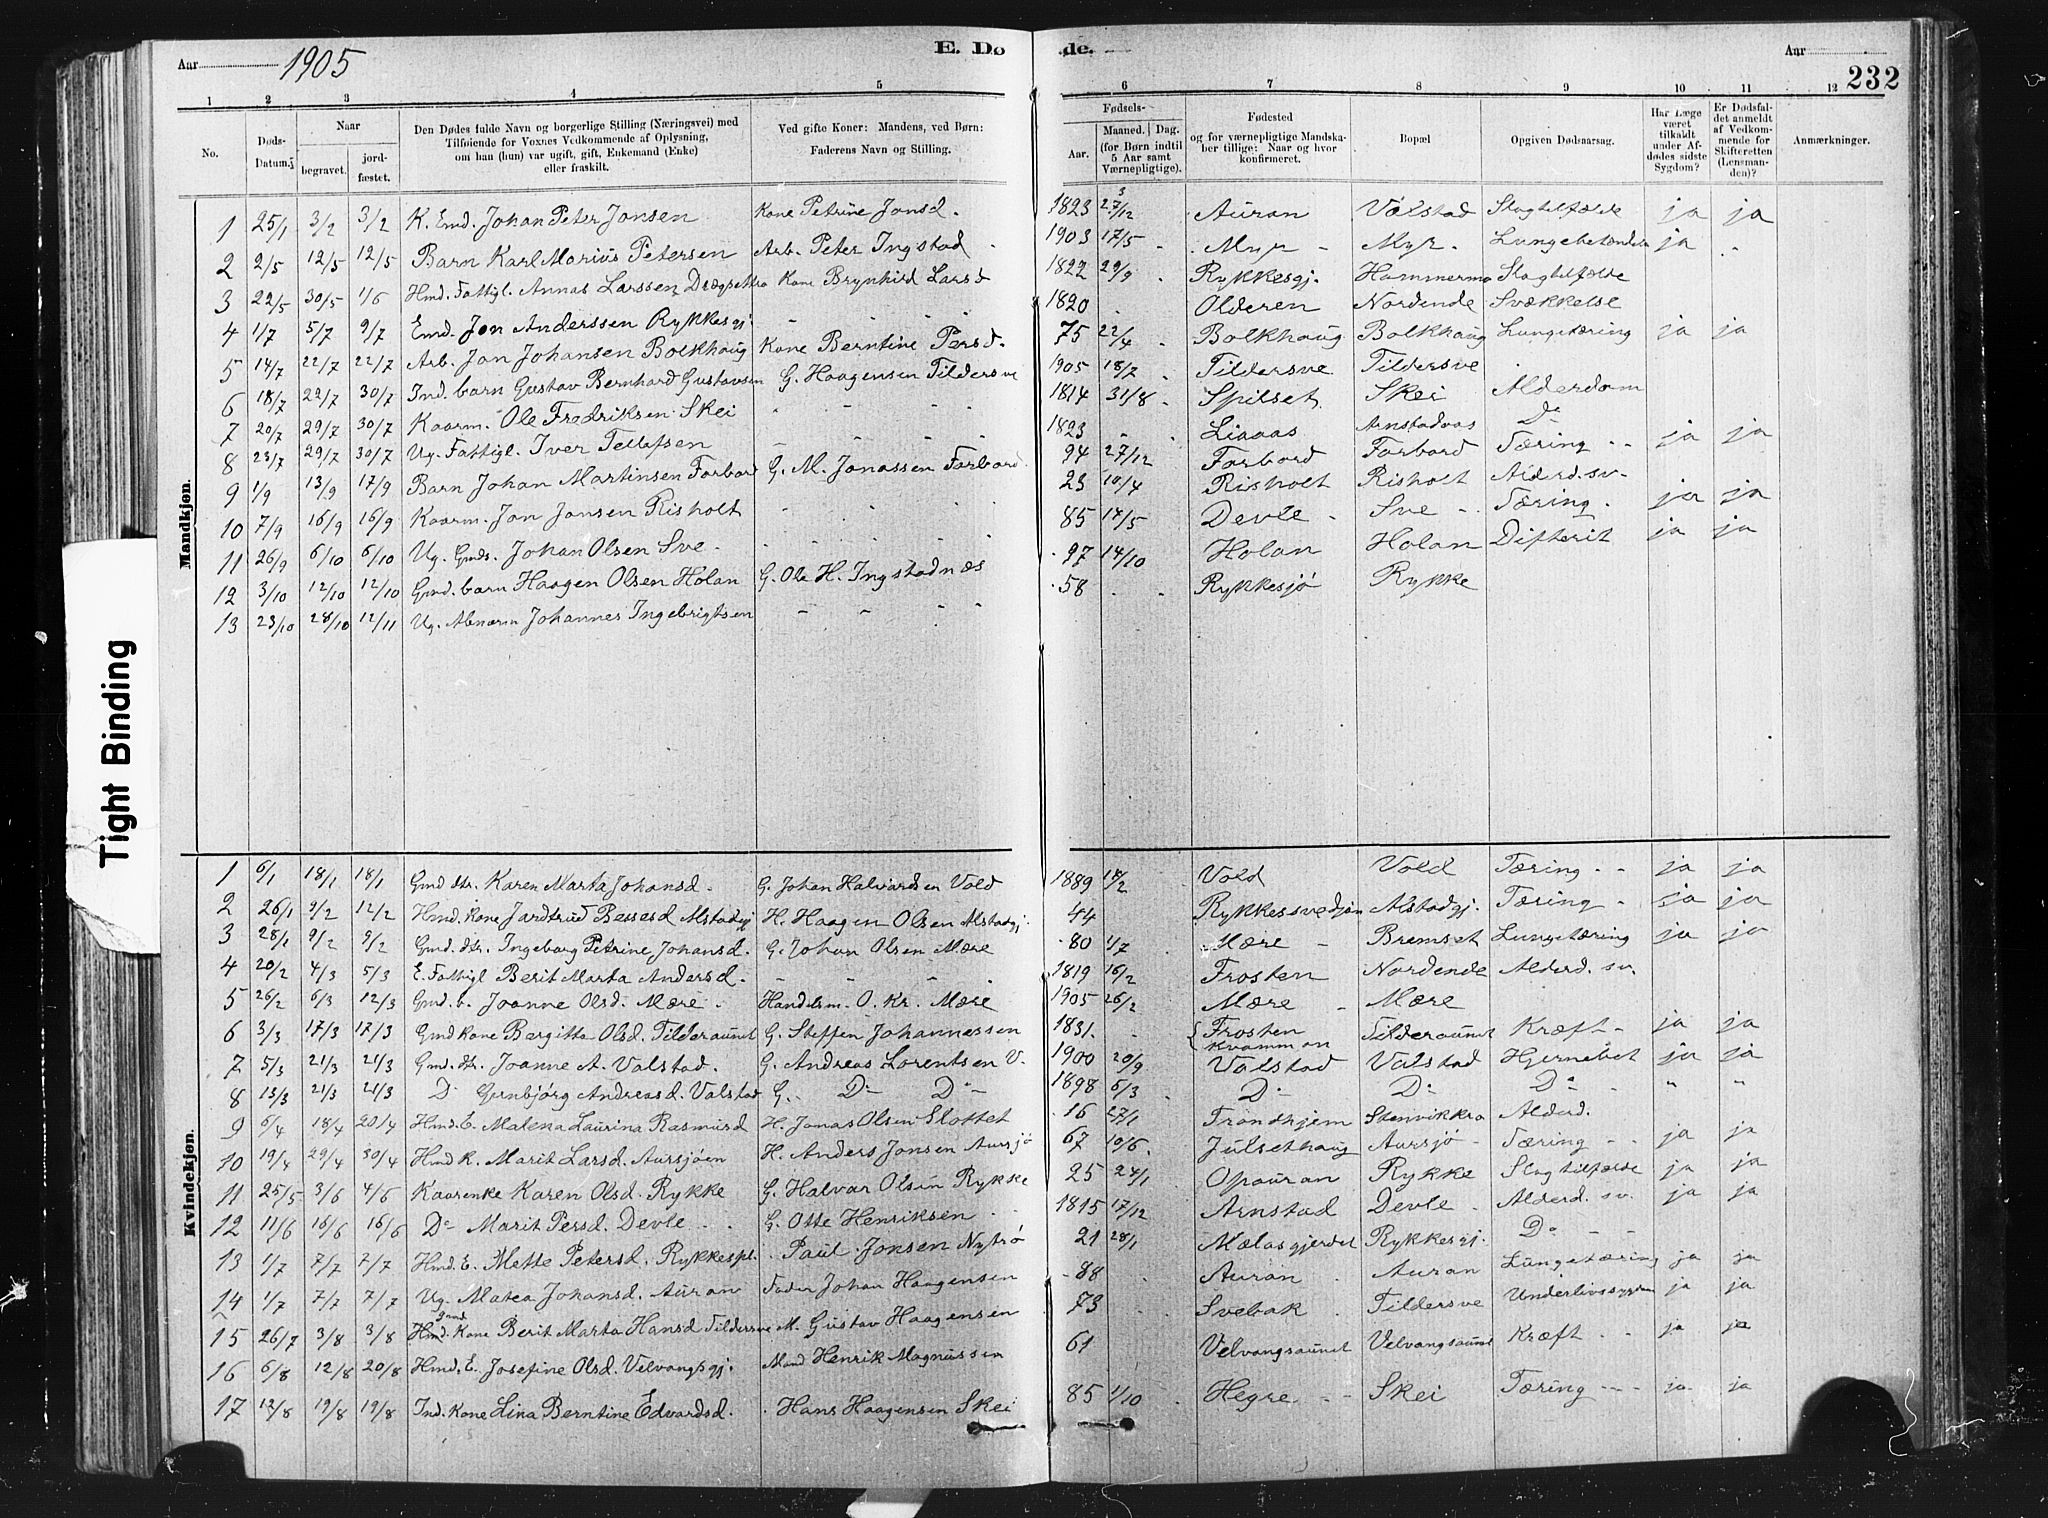 Aar 1905
E. Dø
de.
Aar
232
1 2 3 4 5 6 7 8 9 10 11 12
No.
Døds-Datum.
Naar
begravet.
jord-fæstet.
Den Dødes fulde Navn og borgerlige Stilling (Næringsvei) med
Tilføiende for Voxnes Vedkommende af Oplysning,
om han (hun) var ugift, gift, Enkemand (Enke)
eller fraskilt.
Ved gifte Koner: Mandens, ved Børn:
Faderens Navn og Stilling.
Fødsels-
Aar.
Maaned. Dag.
(for Børn indtil
5 Aar samt
Værnepligtige).
Fødested
og for værnepligtige Mandska-
ber tillige: Naar og hvor
konfirmeret.
Bopæl
Opgiven Dødsaarsag.
Har Læge
været
tilkaldt
under Af-
dødes sidste
Sygdom?
Er Dødsfal-
det anmeldt
af Vedkom-
mende for
Skifteretten
(Lensman-
den)?
Anmærkninger.
Mandkjøn.
1 25/1 3/2 3/2 K. Emd. Johan Peter Jonsen Kone Petrine Jonsd. 1823 27/12 Auran Valstad Slagtilfælde ja ja
2 2/5 12/5 12/5 Barn Karl Marius Petersen Arb. Peter Ingstad 1903 17/5 Myr Myr Lungebetændelse ja
3 22/5 30/5 1/6 Hmd. Fattigl. Annas Larssen Drægsettra Kone Brynhild Larsd 1822 29/9 Rykkesgj. Hammermo Slagtilfælde
4 1/7 5/7 9/7 Emd. Jon Anderssen Rykkesgj. 1820 Olderen Nordende Svækkelse
5 14/7 22/7 22/7 Arb. Jon Johansen Bolkhaug Kone Berntine Persd. 75 22/4 Bolkhaug Bolkhaug Lungetæring ja ja
6 18/7 22/7 30/7 Ind. barn Gustav Bernhard Gustavsen G. Haagensen Tildersve 1905 18/7 Tildersve Tildersve
7 20/7 29/7 30/7 Kaarm. Ole Fredriksen Skei 1814 31/8 Spilset Skei Alderdom
8 23/7 29/7 30/7 Ug. Fattigl. Iver Tellefsen 1823 Liaaas Arnstadaas Do
9 1/9 13/9 17/9 Barn Johan Martinsen Forbord G. M. Jonassen Forbord 94 27/12 Forbord Forbord Tæring ja ja
10 7/9 16/9 16/9 Kaarm. Jon Jonsen Risholt 23 10/4 Risholt Risholt Alderd. sv.
11 26/9 6/10 6/10 Ug. Gmds. Johan Olsen Sve 85 17/5 Devle Sve Tæring ja ja
12 3/10 12/10 12/10 Gmd. barn Haagen Olsen Holan G. Ole H. Ingstadnæs 97 14/10 Holan Holan Difterit ja ja
13 23/10 28/10 12/11 Ug. Almorm Johannes Ingebrigtsen 58 Rykkesjø Rykke
Kvindekjøn.
1 6/1 18/1 18/1 Gmd dtr. Karen Marta Johansd. G. Johan Halvardsen Vold 1889 18/2 Vold Vold Tæring ja ja
2 26/1 9/2 12/2 Hmd. Kone Jardtrud Bessesd Alstadgj H. Haagen Olsen Alstadgj. 44 Rykkessvedjan Alstadgj. Tæring ja ja
3 28/1 9/2 9/2 Gmd. dtr. Ingeborg Petrine Johansd. G. Johan Olsen Mære 80 1/7 Mære Bremset Lungetæring ja ja
4 20/2 4/3 5/3 E. Fattigl Berit Marta Andersd. 1819 16/2 Frosten Nordende Alderd. sv.
5 26/2 6/3 12/3 Gmd. b. Joanne Olsd. Mære Handelsm. O. Kr. Mære 1905 26/2 Mære Mære
6 3/3 17/3 17/3 Gmd Kone Bergitta Olsd. Tilderaunet G. Steffen Johannessen 1831. Frosten Kvamman Tilderaunet Kræft ja ja
7 5/3 21/3 21/3 Gmd. dtr. Joanne A. Valstad. G. Andreas Lorentsen V. 1900 20/9 Valstad Valstad Hjernebet ja ja
8 13/3 21/3 21/3 Do Gunbjørg Andreasd. Valstad G. Do Do 1898 6/3 Do Do Do " "
9 6/4 18/4 20/4 Hmd. E. Malena Laurina Rasmusd H. Jonas Olsen Slottet 16 27/1 Trondhjem Stenvikkra Alderd.
10 19/4 29/4 30/4 Hmd K. Marit Larsd. Aursjøen H. Anders Jonsen Aursjø 67 10/6 Julsethaug Aursjø Tæring ja ja
11 25/5 3/6 4/6 Kaarenke Karen Olsd. Rykke G. Halvar Olsen Rykke 25 24/1 Opauran Rykke Slagtilfælde ja ja
12 11/6 16/6 16/6 Do Marit Persd. Devle G. Otte Henriksen 1815 17/12 Arnstad Devle Alderd. sv. ja ja
13 1/7 7/7 7/7 Hmd. E. Mette Petersd. Rykkespl. Paul Jonsen Nytrø 21 28/1 Mælasgjerdet Rykkesgj. Do
14 1/7 7/7 7/7 Ug. Matea Johansd. Auran Fader Johan Haagensen 88 Auran Auran Lungetæring ja ja
15 26/7 3/8 3/8 Hmd. Kone Berit Marta Hansd Tildersve M. Gustav Haagensen 73 Svebak Tildersve Underlivssygdom ja ja
16 6/8 12/8 20/8 Hmd. E. Josefine Olsd. Velvangsgj. Mand Henrik Magnussen 61 Velvangsaunet Velvangsaunet Kræft ja ja
17 12/8 19/8 19/8 Ind. Kone Lina Berntine Edvardsd. Hans Haagensen Skei 85 1/10 Hegre Skei Tæring ja ja
Tight Binding